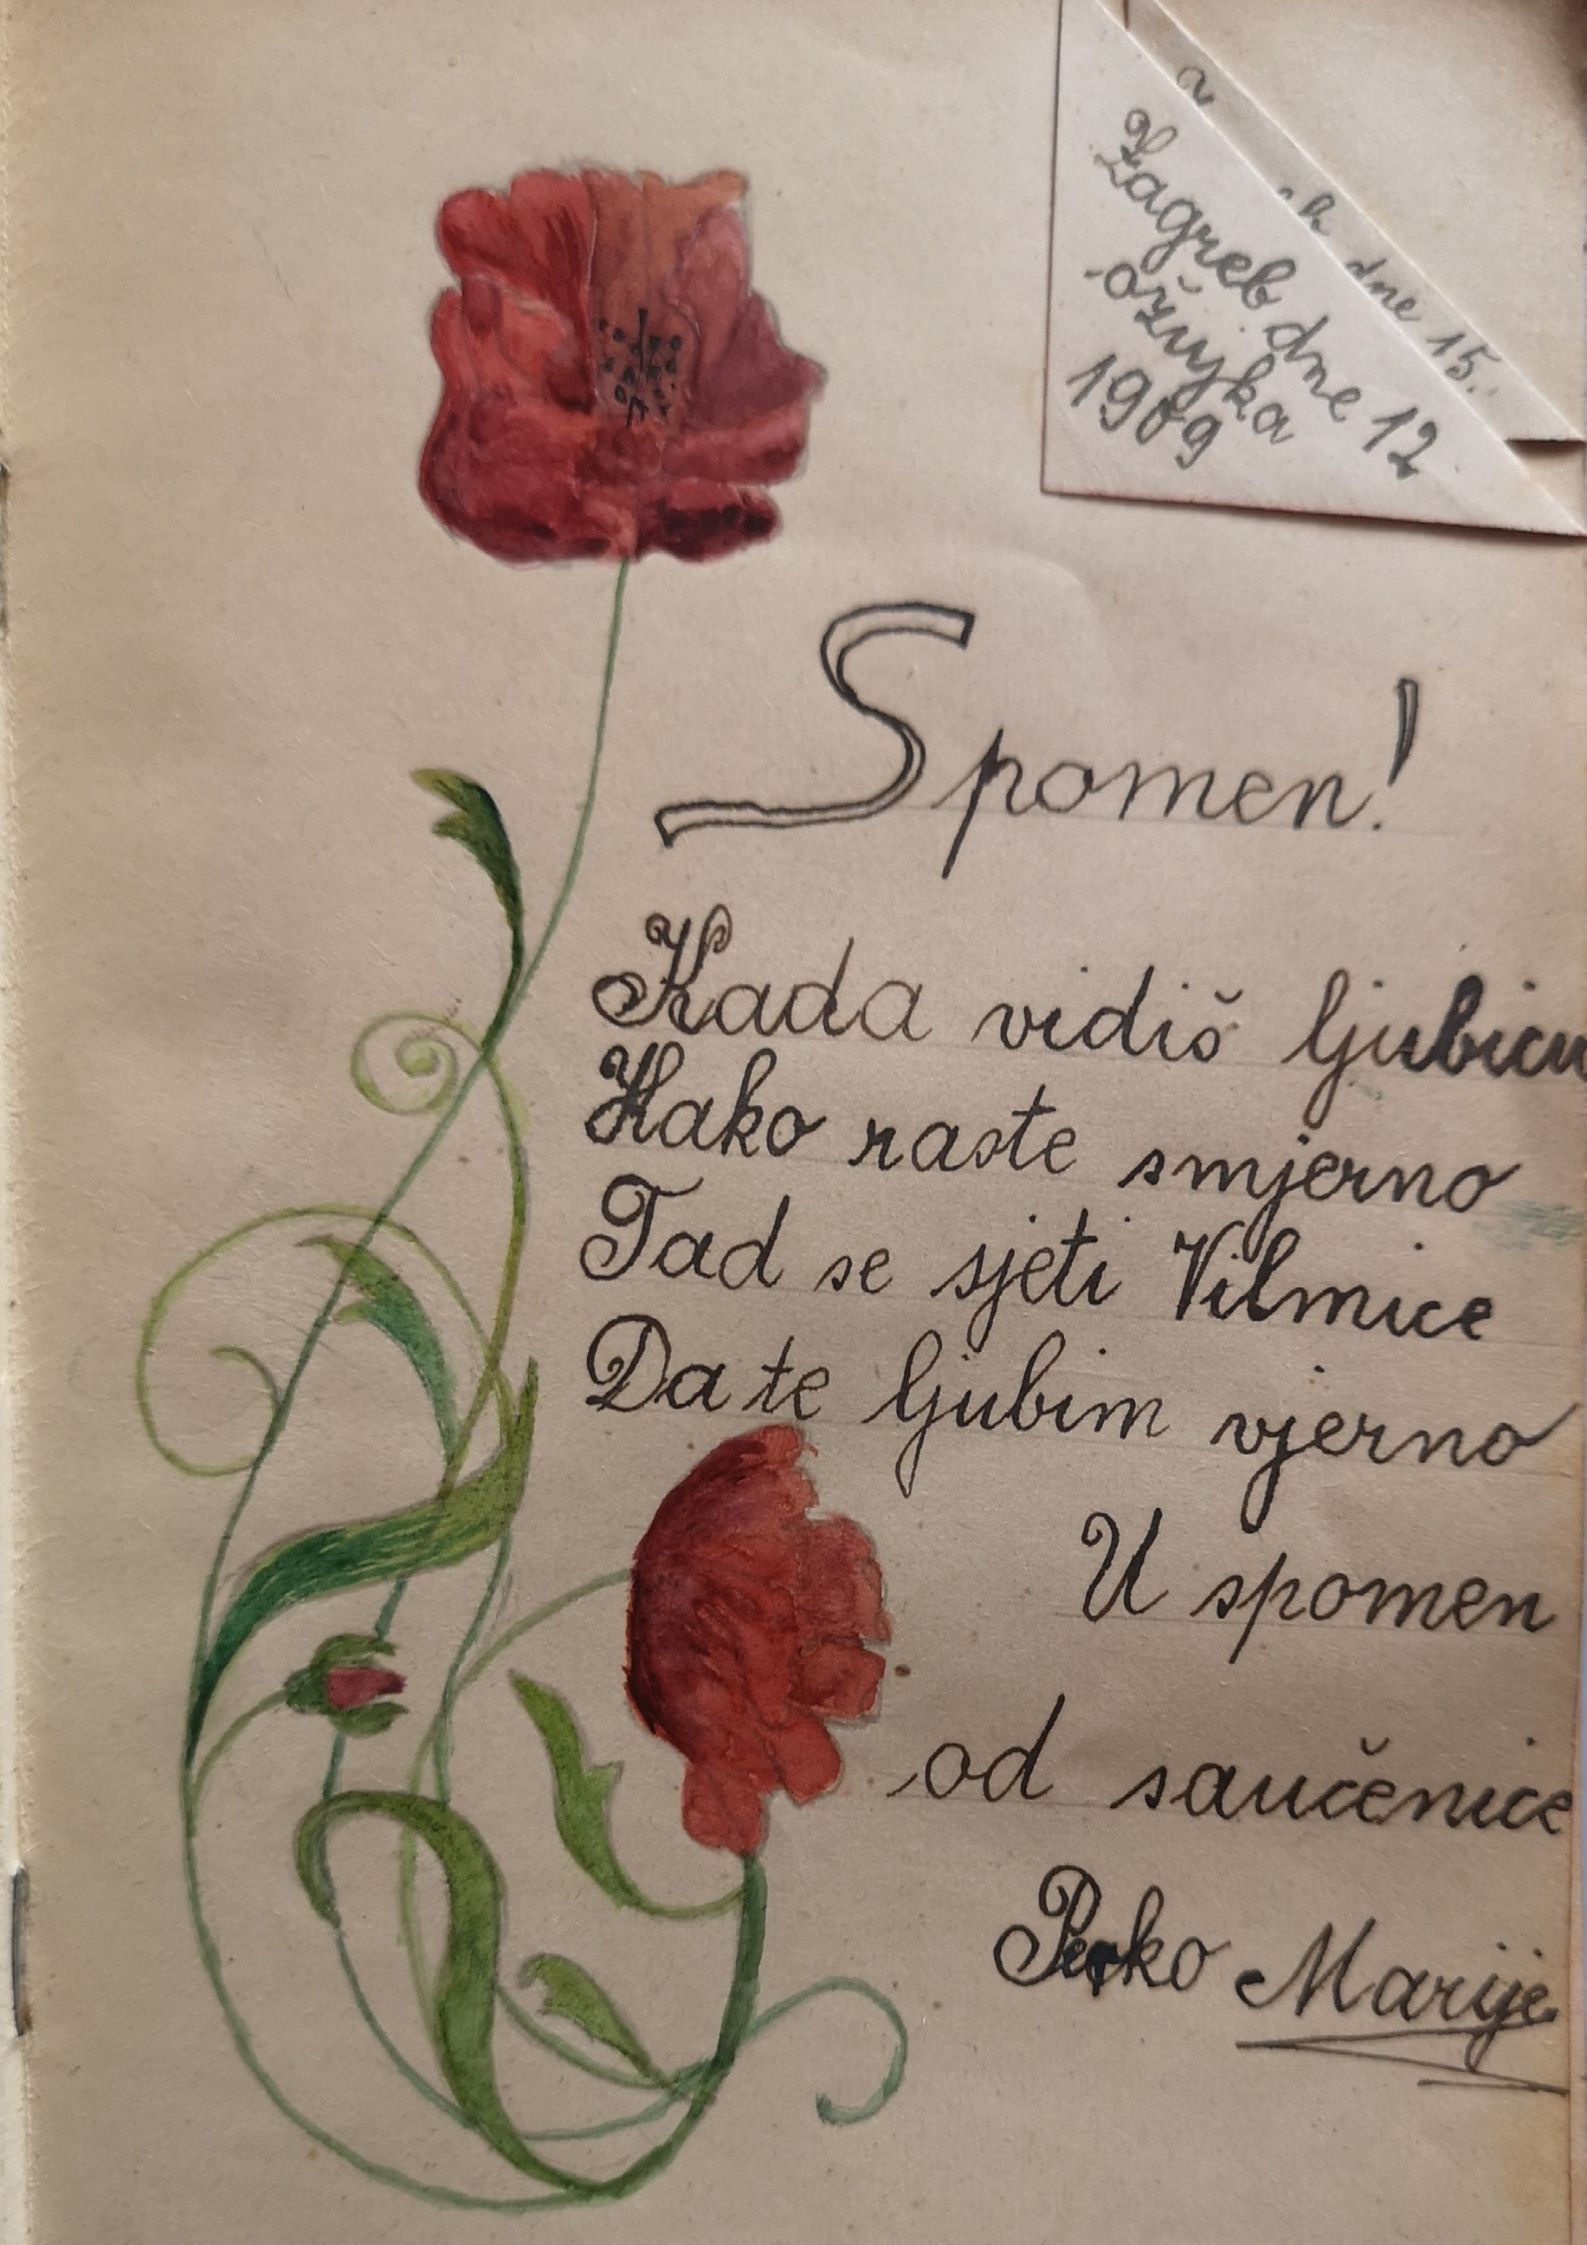 dne 15.
Zagreb dne 12
ožujka
1909
Spomen!
Kada vidiš ljubicu
Kako raste smjerno
Tad se sjeti Vilmice
Da te ljubim vjerno
U spomen
od saučenice
Perko Marije